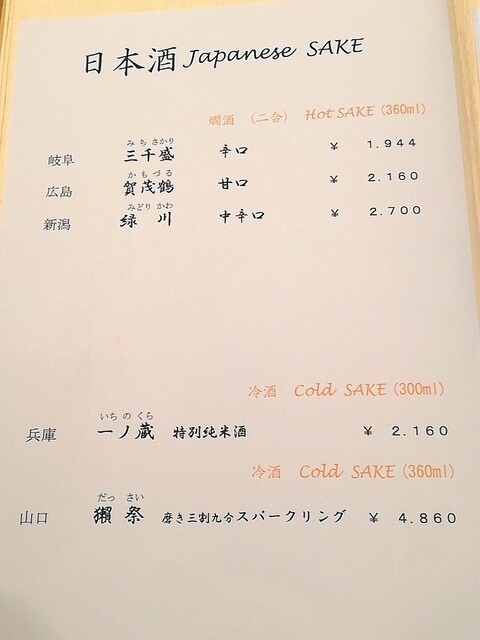 日本酒 Japanese SAKE
燗酒 (二合) Hot SAKE (360ml)
みちさかり
岐阜 三千盛 辛口 ¥ 1.944
かもづる
広島 賀茂鶴 甘口 ¥ 2.160
みどり かわ
新潟 緑 川 中辛口 ¥ 2.700
冷酒 Cold SAKE (300ml)
いち の くら
兵庫 一ノ蔵 特別純米酒 ¥ 2.160
冷酒 Cold SAKE (360ml)
だっ さい
山口 獺 祭 磨き三割九分スパークリング ¥ 4.860